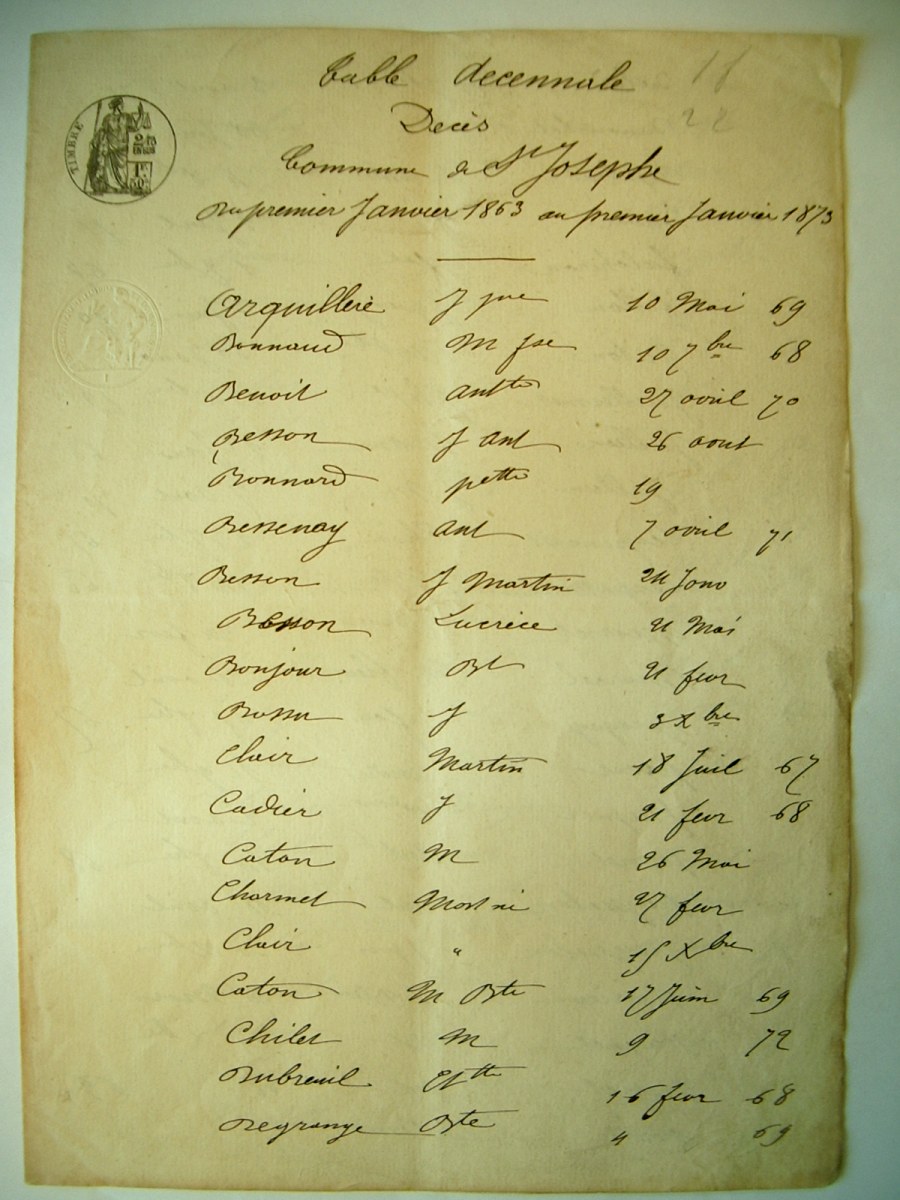 Table decennale
Decès
Commune de St Josephe
du premier Janvier 1863 au premier Janvier 1873
TIMBRE
Arquillere J 10 Mai 69
Bonnaud M fse 10 7bre 68
Benoit Antte 27 avril 70
Besson J Ant 26 aout
Bonnard pette 19
Bessenay Ant 7 avril 71
Besson J Martin Janv
Besson Lucrèce 21 Mai
Bonjour Bt 21 fevr
Bossu J 3 Xbre
Clair Martin 18 Juil 67
Cadier J 21 fevr 68
Caton M 26 Mai
Charmet 27 fevr
Clair " 15 Xbre
Caton M Bte 17 Juin 69
Chilet M 9 72
Dubreuil 16 fevr 68
Degrange Bte 4 69